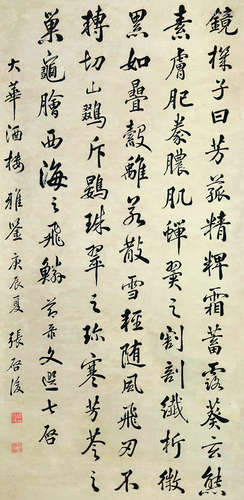 鏡機子曰芳菰精粺霜蓄露葵玄熊
素膚肥豢膿肌蟬翼之割剖纖析微
累如疊縠離若散雪輕随風飛刃不
轉切山鵽斥鷃珠翠之珍寒芳苓之
巢龜膾西海之飛鱗 節录文選七啓
大華酒樓 雅鑒 庚辰夏 張啓後